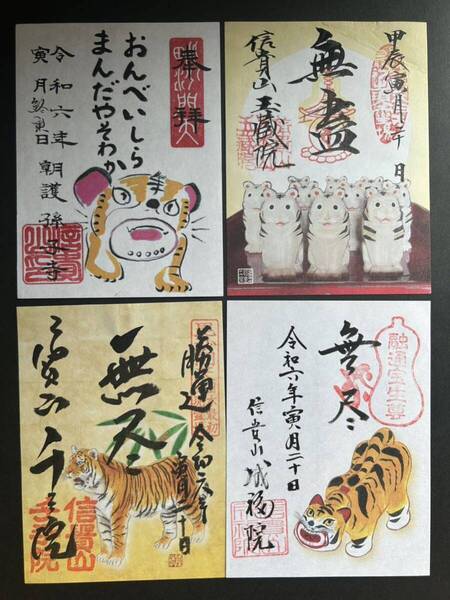 奉拝
おんべいしら
まんだやそわか
令和六年
寅月 寅日 朝護孫子寺
甲辰寅月二十日
無盡
信貴山 玉蔵院
令和六年
寅月二十日
勝運
無尽
三寅の千手院
信貴山
融通宝生尊
無尽
令和六年寅月二十日
信貴山 成福院